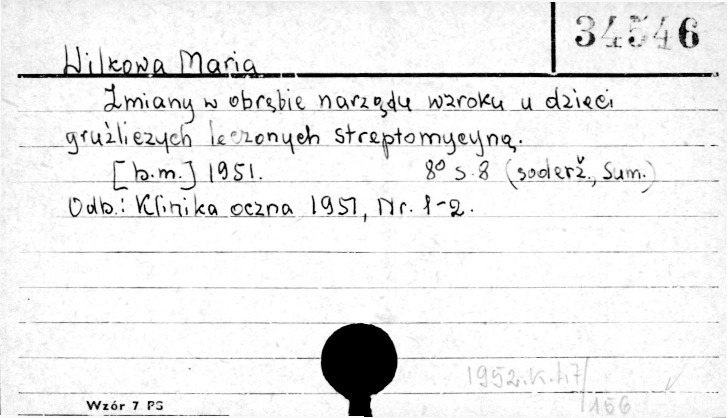 34546
Wilkowa Maria
Zmiany w obrębie narządu wzroku u dzieci
gruźliczych leczonych streptomycyną.
[b.m.] 1951. 8⁰ s. 8 (soderž., Sum.)
Odb.: Klinika oczna 1951, Nr. 1-2.
1952.K.
156
Wzór 7 PS